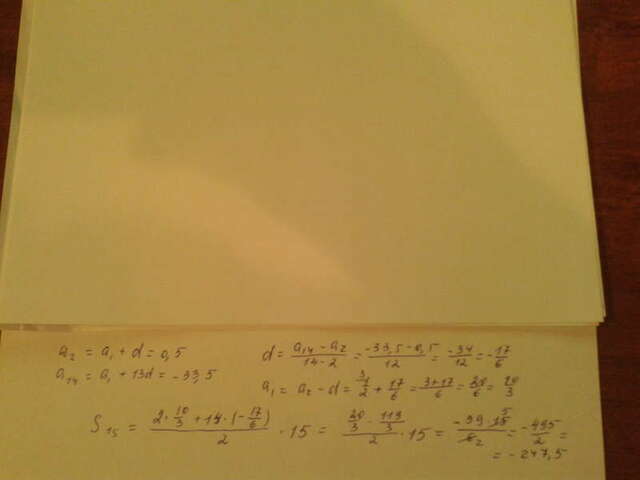 a₂ = a₁ + d = 0,5
a₁₄ = a₁ + 13d = -33,5
d = (a₁₄ - a₂)/(14 - 2) = (-33,5 - 0,5)/12 = -34/12 = -17/6
a₁ = a₂ - d = 1/2 + 17/6 = (3+17)/6 = 20/6 = 10/3
S₁₅ = (2 · 10/3 + 14 · (-17/6))/2 · 15 = (20/3 - 119/3)/2 · 15 = (-99 · 15 5)/(6 2) = -495/2 =
= -247,5